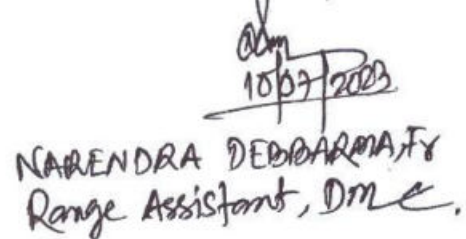 10/07/2023
NARENDRA DEBBARMA, Fr
Range Assistant, DMC.